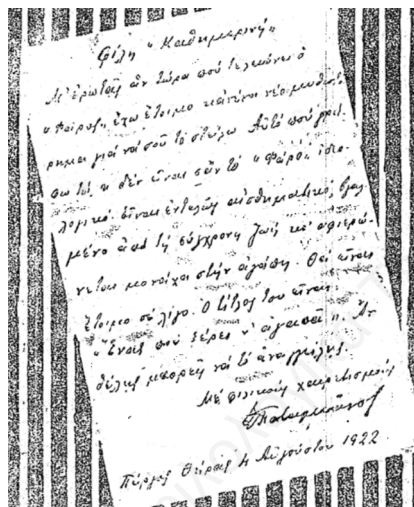 Φίλη «Καθημερινή»
Μ' ἐρωτᾶς ἄν τώρα πού τελειώνει ὁ
« ἔχω ἕτοιμο κανένα νέο μυθιστό-
ρημα γιά νά σοῦ τό στείλω. Αὐτό πού γρά-
φω τώρα δέν εἶναι σάν τό «
λογικό. Εἶναι ἐντελῶς αἰσθηματικό, βγαλ-
μένο ἀπό τή σύγχρονη ζωή κι' ἀφιερώ-
νεται μονάχα στήν ἀγάπη. Θά εἶναι
ἕτοιμο σέ λίγο. Ὁ τίτλος του εἶναι
«Ἐκεῖνος πού ξέρει ν' ἀγαπᾶ». Ἄν
θέλῃς μπορεῖς νά τό ἀναγγείλῃς.
Μέ φιλικούς χαιρετισμούς
Πύργος Θήρας 4 Αὐγούστου 1922